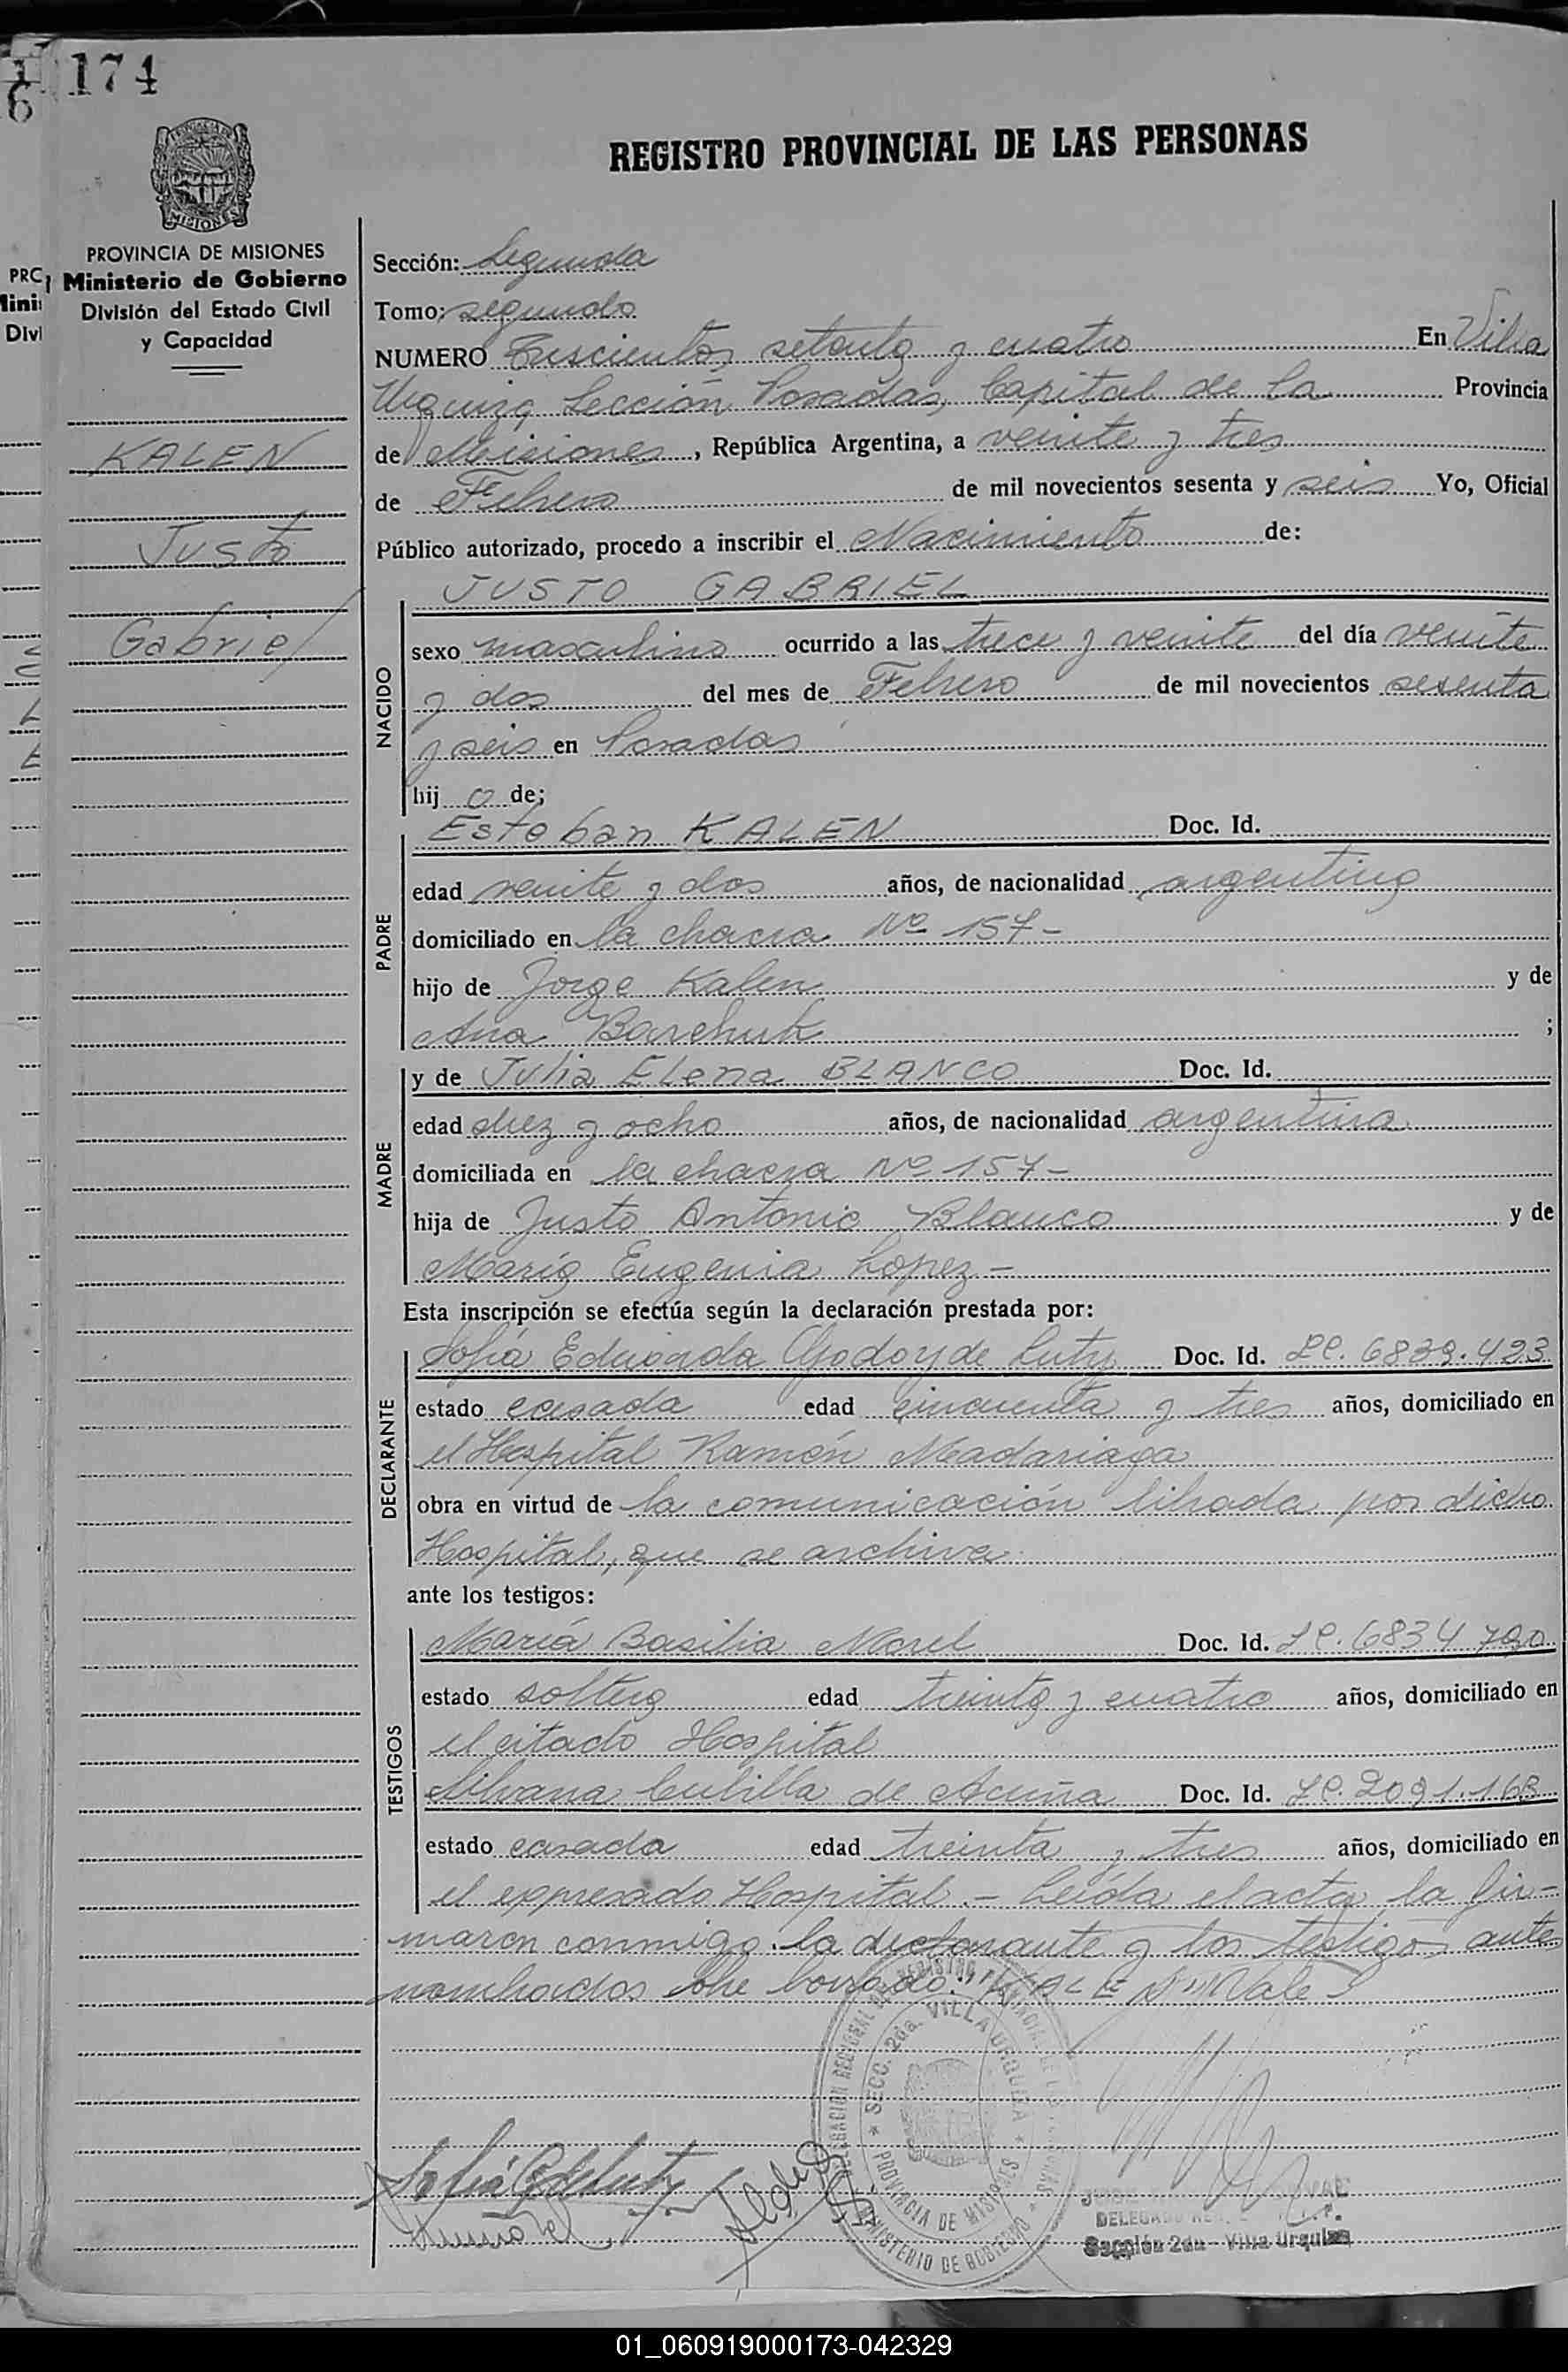 174
REGISTRO PROVINCIAL DE LAS PERSONAS
MISIONES
PROVINCIA DE MISIONES
Ministerio de Gobierno
División del Estado Civil
y Capacidad
KALEN
Justo
Gabriel
Sección: Segunda
Tomo: segundo
NUMERO Trescientos setenta y cuatro En Villa
Urquiza Sección Posadas, Capital de la Provincia
de Misiones, República Argentina, a veinte y tres
de Febrero de mil novecientos sesenta y seis Yo, Oficial
Público autorizado, procedo a inscribir el Nacimiento de:
JUSTO GABRIEL
NACIDO
sexo masculino ocurrido a las trece y veinte del día veinte
y dos del mes de Febrero de mil novecientos sesenta
y seis en Posadas
hijo de;
PADRE
Esteban KALEN Doc. Id.
edad veinte y dos años, de nacionalidad argentino
domiciliado en la chacra Nº 157-
hijo de Jorge Kalen y de
Ana Barchuk ;
MADRE
y de Julia Elena BLANCO Doc. Id.
edad diez y ocho años, de nacionalidad argentina
domiciliada en la chacra Nº 157-
hija de Justo Antonio Blanco y de
María Eugenia Lopez-
Esta inscripción se efectúa según la declaración prestada por:
DECLARANTE
Sofía Eduarda Godoy de Luty Doc. Id. LC. 6839.423
estado casada edad cincuenta y tres años, domiciliado en
el Hospital Ramón Madariaga
obra en virtud de la comunicación librada por dicho
Hospital, que se archiva.
ante los testigos:
TESTIGOS
María Basilia Morel Doc. Id. LC. 6834790
estado soltera edad treinta y cuatro años, domiciliado en
el citado Hospital
Silvana Cubilla de Acuña Doc. Id. LC. 2091.163
estado casada edad treinta y tres años, domiciliado en
el expresado Hospital.- Leída el acta, la fir-
maron conmigo la declarante y los testigos ante
nombrados sobre borrado: "KALEN" Vale
SECC. 2da. VILLA URQUIZA
PROVINCIA DE MISIONES
MINISTERIO DE GOBIERNO
Sofía G de Luty
Sección 2da - Villa Urquiza
01_060919000173-042329